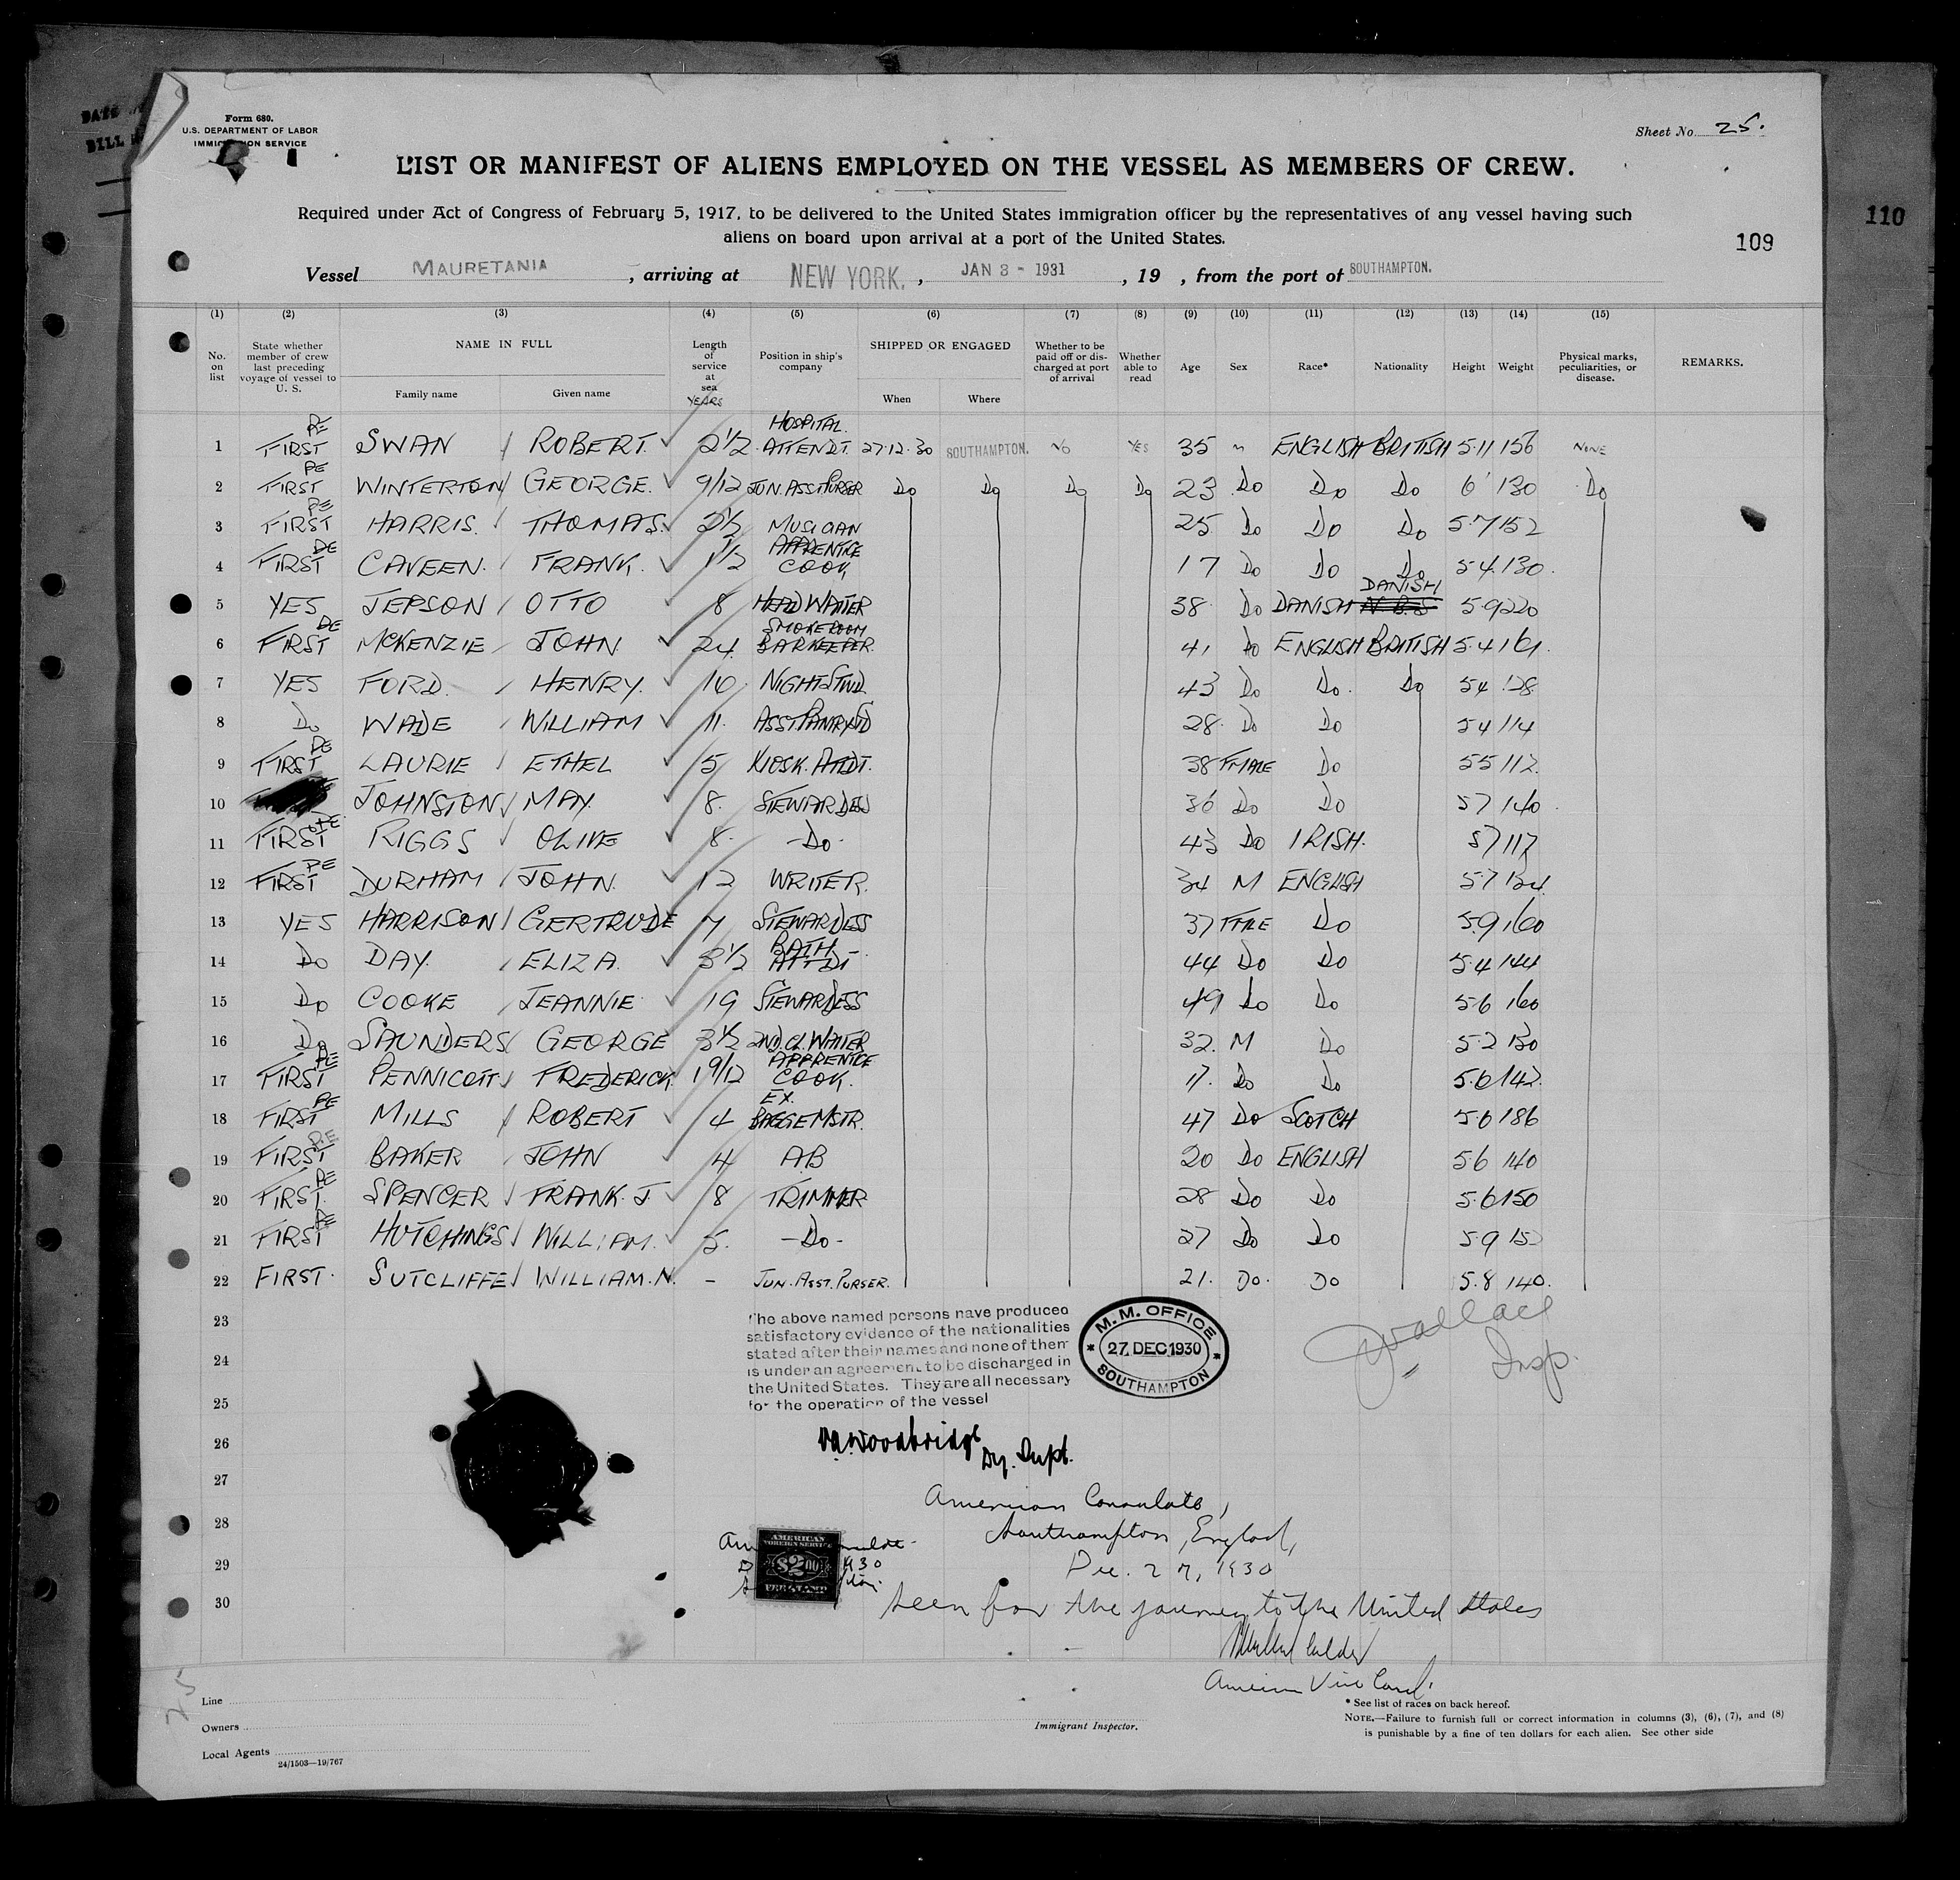 DATE
BILL
Form 680.
U.S. DEPARTMENT OF LABOR
IMMIGRATION SERVICE
Sheet No. 25.
LIST OR MANIFEST OF ALIENS EMPLOYED ON THE VESSEL AS MEMBERS OF CREW.
Required under Act of Congress of February 5, 1917, to be delivered to the United States immigration officer by the representatives of any vessel having such
aliens on board upon arrival at a port of the United States.
110
109
Vessel MAURETANIA, arriving at NEW YORK, JAN 3 - 1931, 19 , from the port of SOUTHAMPTON.
(1) (2) (3) (4) (5) (6) (7) (8) (9) (10) (11) (12) (13) (14) (15)
No. on list State whether member of crew last preceding voyage of vessel to U. S. NAME IN FULL Family name Given name Length of service at sea YEARS Position in ship's company SHIPPED OR ENGAGED When Where Whether to be paid off or discharged at port of arrival Whether able to read Age Sex Race* Nationality Height Weight Physical marks, peculiarities, or disease. REMARKS.
1 FIRST RE SWAN ROBERT. 2 1/2 HOSPITAL. ATTENDT. 27.12.30 SOUTHAMPTON. NO YES 35 M ENGLISH BRITISH 5.11 156 NONE
2 FIRST RE WINTERTON GEORGE. 9/12 JUN. ASST PURSER Do Do Do Do 23 Do Do Do 6' 130 Do
3 FIRST RE HARRIS. THOMAS. 2 1/2 MUSICIAN 25. Do Do Do 5.7 152
4 FIRST RE CAVEEN. FRANK. 1 1/2 APPRENTICE COOK 17 Do Do Do 5.4 130.
5 YES JEPSON OTTO 8 HEAD WAITER 38 Do DANISH DANISH 5.9 220
6 FIRST RE MCKENZIE JOHN 24 SMOKEROOM BARKEEPER. 41 Do ENGLISH BRITISH 5.4 161.
7 YES FORD. HENRY. 10 NIGHT STWD 43 Do Do. Do 5 4 128
8 Do WADE WILLIAM 11. ASST PANRY STD 28. Do Do 5 4 114
9 FIRST RE LAURIE ETHEL 5 KIOSK. ATTDT. 38 FMALE Do 5 5 112.
10 JOHNSTON MAY 8. STEWARDESS 36 Do Do 5 7 140.
11 FIRST RE RIGGS OLIVE 8. -Do- 43 Do IRISH. 5 7 117
12 FIRST RE DURHAM JOHN. 12 WRITER. 34 M ENGLISH 5.7 134.
13 YES HARRISON GERTRUDE 7 STEWARDESS 37 FMLE Do 5.9 160
14 Do DAY. ELIZA. 3 1/2 BATH ATTDT 44 Do Do 5.4 144
15 Do COOKE JEANNIE 19 STEWARDESS 49 Do Do 5.6 160
16 Do SAUNDERS GEORGE 3 1/2 2ND. CL. WAITER 32. M Do 5.2 130
17 FIRST RE PENNICOTT FREDERICK 1 9/12 APPRENTICE COOK. 17. Do Do 5.6 142.
18 FIRST RE MILLS ROBERT 4 EX. BAGGE MSTR. 47 Do SCOTCH 5 6 186
19 FIRST RE BAKER JOHN 4 A.B 20 Do ENGLISH 5.6 140
20 FIRST. RE SPENCER FRANK. J 8 TRIMMER 28 Do Do 5.6 150
21 FIRST RE HUTCHINGS WILLIAM. 5. -Do- 27 Do Do 5.9 152
22 FIRST. SUTCLIFFE WILLIAM. N. - JUN. ASST. PURSER. 21. Do. Do 5.8 140.
23
24
25
26
27
28
29
30
The above named persons have produced
satisfactory evidence of the nationalities
stated after their names and none of them
is under an agreement to be discharged in
the United States. They are all necessary
for the operation of the vessel
M. M. OFFICE
27 DEC 1930
SOUTHAMPTON
Wallace
Insp.
Woodbridge
Dy. Supt.
American Consulate,
Southampton, England,
Dec. 27, 1930
AMERICAN
FOREIGN SERVICE
$2.00
FEE STAMP
Seen for the journey to the United States
American Vice Consul.
25
Line
Owners
Local Agents
24/1503—19/767
Immigrant Inspector.
* See list of races on back hereof.
NOTE.—Failure to furnish full or correct information in columns (3), (6), (7), and (8)
is punishable by a fine of ten dollars for each alien. See other side